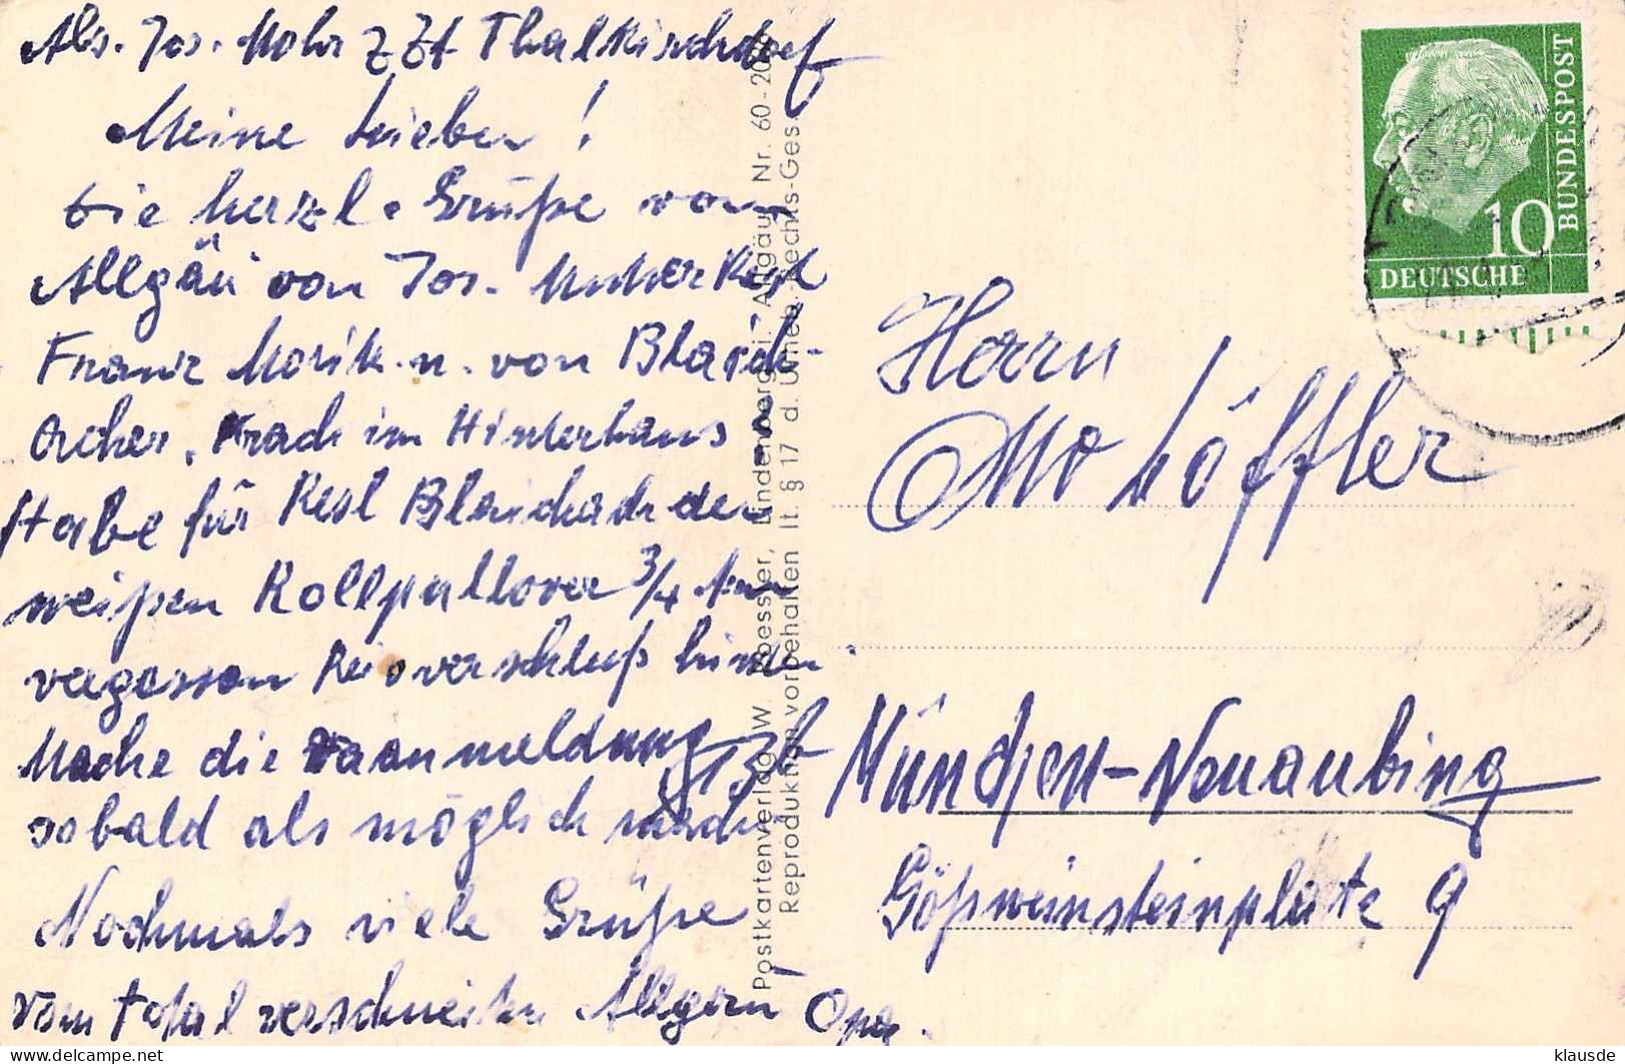 Abs. Jos. Mohr z Zt Thalkirchdorf
Meine Lieben !
Die herzl. Grüße vom
Allgäu von Jos. Mutter Resl
Franz u. von Blaich-
acher. Krach im Hinterhaus
Habe für Resl Blaichach den
weißen Rollpullover 3/4 Arm
vergessen Reisverschluß hinten
Mache die anmeldung
sobald als möglich
Nochmals viele Grüße
vom total verschneiten Allgäu Opa.
Postkartenverlag W. Lindenberg i. Allgäu Nr. 60-20
Reproduktion vorbehalten lt. § 17 d. Urheb. Rechts-Ges
DEUTSCHE
BUNDESPOST
10
Herrn
Otto Löffler
München-Neuaubing
Gößweinsteinplatz 9
klausde